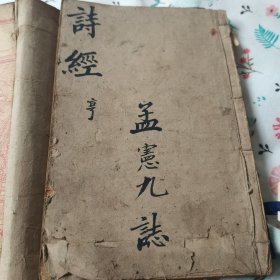 詩經
亨
孟憲九誌